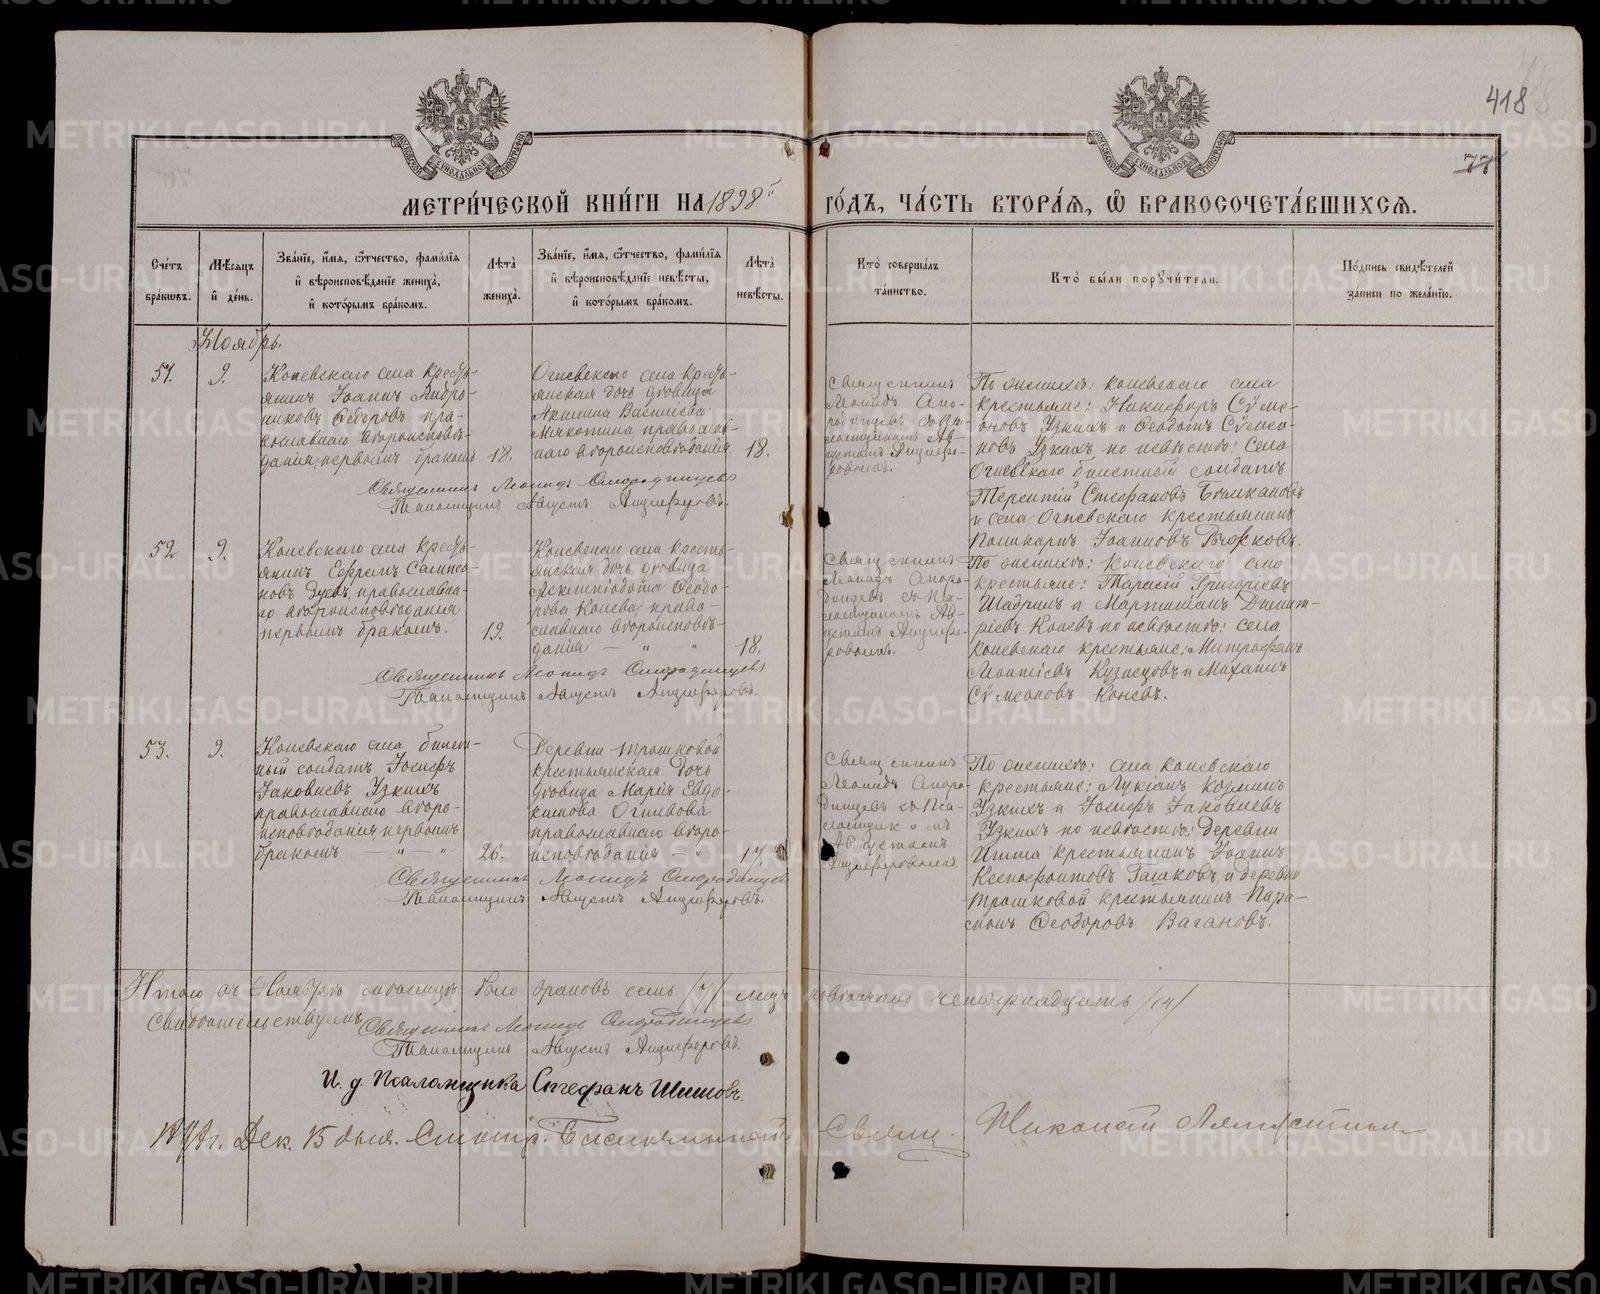 418
77
МЕТРИ́ЧЕСКОЙ КНИ́ГИ НА 1898й ГО́ДЪ, ЧА́СТЬ ВТОРА́Я, Ѡ БРАКОСОЧЕТА́ВШИХСЯ.
Сче́тъ бра́ковъ.
Мѣ́сяцъ и́ де́нь.
Зва́нїе, и́мя, ѻ҆́тчество, фами́лїя и́ вѣроисповѣ́данїе жениха̀, и́ кото́рымъ бра́комъ.
Лѣ́та жениха̀.
Зва́нїе, и́мя, ѻ҆́тчество, фами́лїя и́ вѣроисповѣ́данїе невѣ́сты, и́ кото́рымъ бра́комъ.
Лѣ́та невѣ́сты.
Кто̀ соверша́лъ та́инство.
Кто̀ бы́ли поручи́тели.
По́дпись свидѣ́телей за́писи по жела́нїю.
Ноябрь.
51.
9.
Коневскаго села кресть-
янинъ Іоаннъ
Ѳедоровъ пра-
вославнаго вѣроисповѣ-
данія, первымъ бракомъ
18.
Огневскаго села кресть-
янская дочь дѣвица
Акилина Василіева
Мякотина православ-
наго вѣроисповѣданія
18.
Священникъ
Леонидъ Смо-
родинцевъ съ Пса-
ломщикомъ Ав-
густомъ Анциферо-
ровымъ.
По женихѣ: Коневскаго села
крестьяне: Никифоръ Сѵме-
оновъ Узкихъ и Ѳеодотъ Сѵмео-
новъ Узкихъ по невѣстѣ: Села
Огневскаго билетный солдатъ
Терентій Стефановъ
и села Огневскаго крестьянинъ
Поликарпъ Іоанновъ
Священникъ Леонидъ Смородинцевъ
Псаломщикъ Августъ Анциферовъ.
52
9.
Коневскаго села кресть-
янинъ Ефремъ Сампсо-
новъ православна-
го вѣроисповѣданія
первымъ бракомъ.
19.
Коневскаго села кресть-
янская дочь дѣвица
Ѳеодо-
рова Конева право-
славнаго вѣроисповѣ-
данія — " — "
18.
Священникъ
Леонидъ Сморо-
динцевъ съ Пса-
ломщикомъ Ав-
густомъ Анцифе-
ровымъ.
По женихѣ: Коневскаго села
крестьяне: Тарасій Григоріевъ
Шадринъ и Мартиніанъ Димит-
ріевъ Коневъ по невѣстѣ: села
Коневскаго крестьяне: Митрофанъ
Леонтіевъ Кузнецовъ и Михаилъ
Сѵмеоновъ Коневъ.
Священникъ Леонидъ Смородинцевъ
Псаломщикъ Августъ Анциферовъ.
53.
9.
Коневскаго села билет-
ный солдатъ Іосифъ
Іаковлевъ Узкихъ
православнаго вѣро-
исповѣданія, первымъ
бракомъ — " — "
26.
Деревни Трошковой
крестьянская дочь
дѣвица Марія Евдо-
кимова Огнивова
православнаго вѣро-
исповѣданія — "
17.
Священникъ
Леонидъ Сморо-
динцевъ съ Пса-
ломщикомъ
Августомъ
Анциферовымъ
По женихѣ: села Коневскаго
крестьяне: Лукіанъ Козминъ
Узкихъ и Іосифъ Іаковлевъ
Узкихъ по невѣстѣ: деревни
крестьянинъ Іоаннъ
Ксенофонтовъ Гашковъ, и деревни
Трошковой крестьянинъ Пара-
монъ Ѳеодоровъ Вагановъ.
Священникъ Леонидъ Смородинцевъ
Псаломщикъ Августъ Анциферовъ.
Итого въ Ноябрѣ мѣсяцѣ было браковъ семь /7/ лицъ повѣнчано четырнадцать /14/
Свидѣтельствуемъ Священникъ Леонидъ Смородинцевъ
Псаломщикъ Августъ Анциферовъ.
И. д. Псаломщика Стефанъ Шишовъ.
Дек. 15 дня. Смотр. Свящ. Николай
METRIKI.GASO-URAL.RU